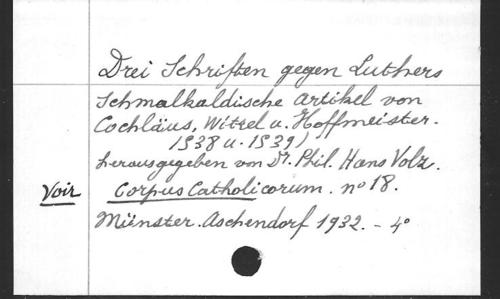 Drei Schriften gegen Luthers
Schmalkaldische Artikel von
Cochläus, Witzel u. Hoffmeister.
1538 u. 1539)
herausgegeben von Dr. Phil. Hans Volz.
Voir Corpus Catholicorum. nº 18.
Münster. Aschendorf 1932. - 4º